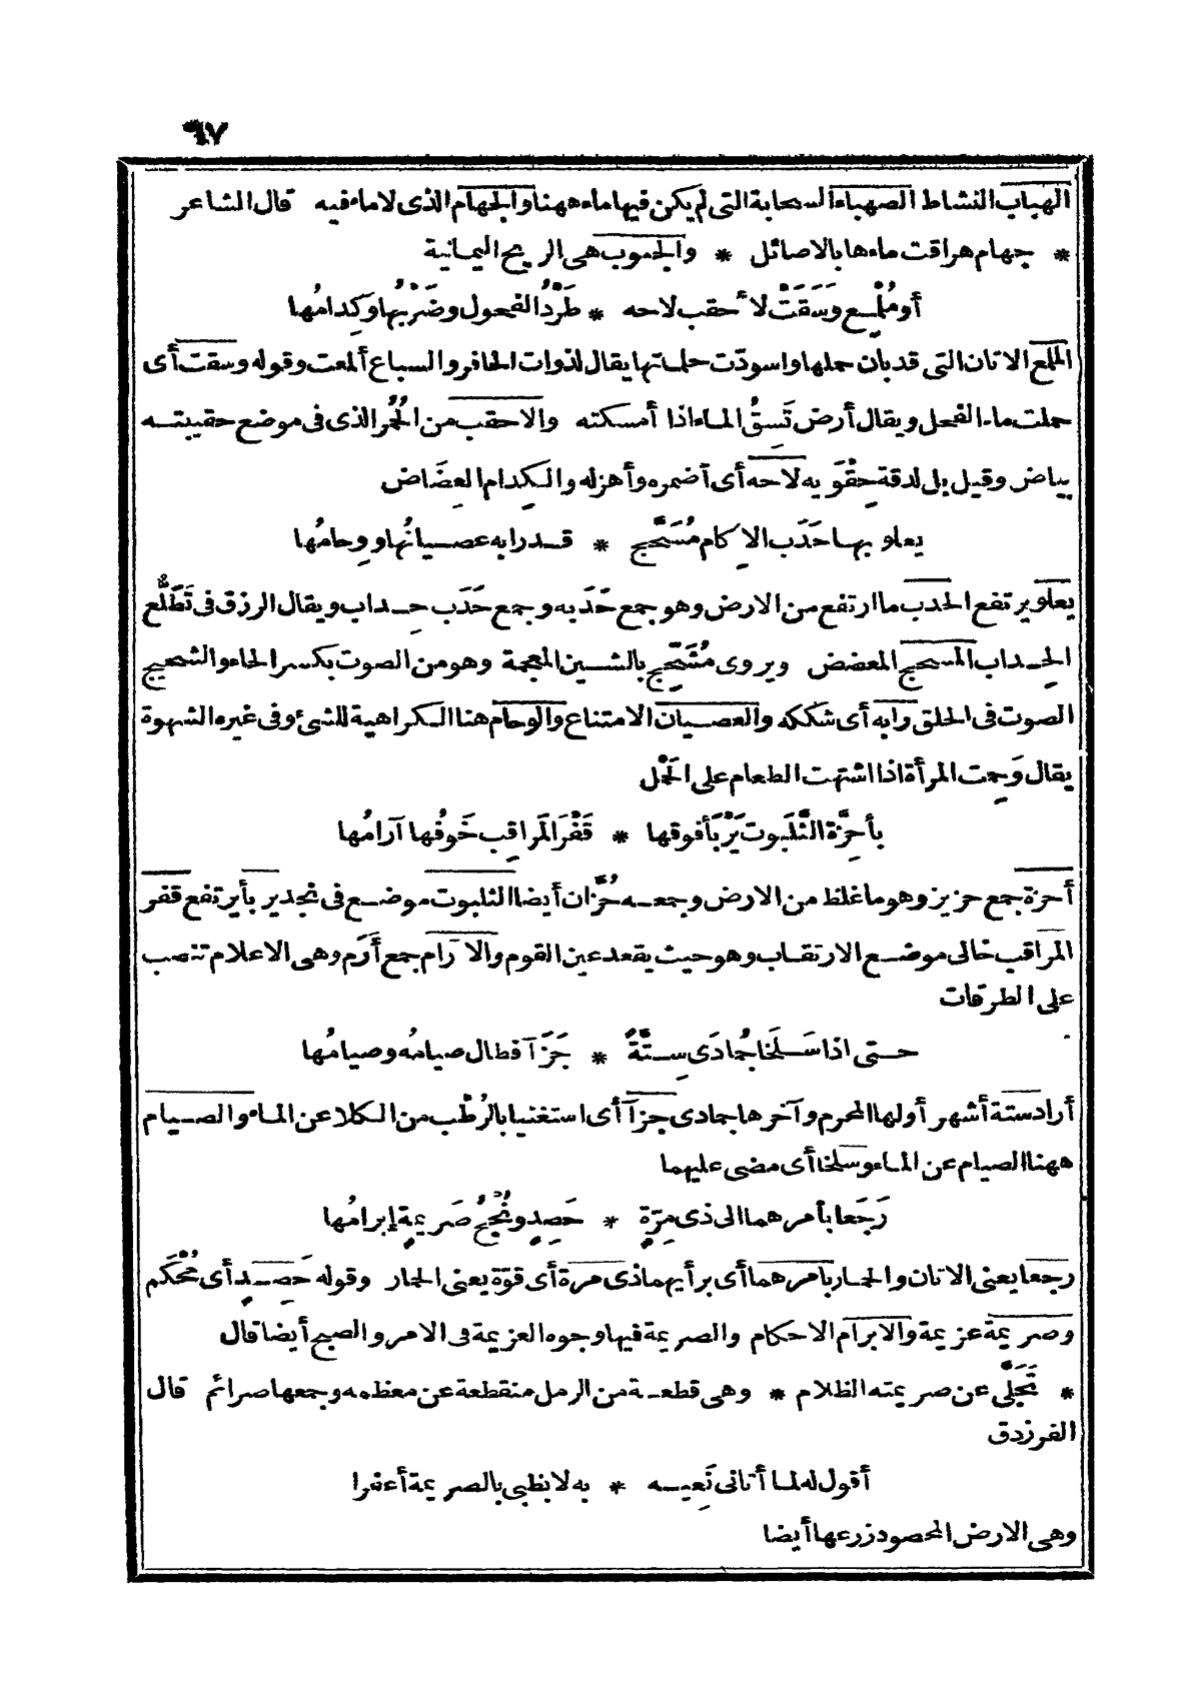 ٦٧
الهباب النشاط الصهباء السحابة التى لم يكن فيها ماء ههنا والجهام الذى لا ماء فيه قال الشاعر
* جهام هراقت ماءها بالاصائل * والجنوب هى الريح اليمانية
أو مُلْمِع وَسَقَتْ لأحقب لاحه * طَرْدُ الفحول وضَرْبُها وَكِدامُها
الملمع الاتان التى قد بان حملها واسودّت حلماتها يقال لذوات الحافر والسباع ألمعت وقوله وسقت أى
حملت ماء الفحل ويقال أرض تَسِقُ الماء اذا أمسكته والاحقب من الحُمُر الذى فى موضع حقيبته
بياض وقيل بل لدقة حِقْوَيه لاحه أى أضمره وأهزله والكِدام العِضَاض
يعلو بها حَدَب الإكام مُسَحَّج * قد رابه عصيانُها ووِحامُها
يعلو يرتفع الحدب ما ارتفع من الارض وهو جمع حَدَبه وجمع حَدَب حِداب ويقال الرزق فى تَطَلُّع
الحِداب المسحج المعضض ويروى مُشَحِّج بالشين المعجمة وهو من الصوت بكسر الحاء والشحيج
الصوت فى الحلق رابه أى شككه والعصيان الامتناع والوحام هنا الكراهية للشىء وفى غيره الشهوة
يقال وَحِمت المرأة اذا اشتهت الطعام على الحَمْل
بأحِزَّة الثَّلَبوت يَرْبَأ فوقها * قَفْرَ المَراقِب خَوفُها آرامُها
أحزة جمع حزيز وهو ما غلظ من الارض وجمعه حُزّان أيضا الثلبوت موضع فى نجد يربأ يرتفع قفر
المراقب خالى موضع الارتقاب وهو حيث يقعد عين القوم والآرام جمع أَرَم وهى الاعلام تنصب
على الطرقات
حتى اذا سَلَخَا جُمادَى سِتَّةً * جَزَآ فطال صيامُه وصيامُها
أراد ستة أشهر أولها المحرم وآخرها جمادى جزآ أى استغنيا بالرُطْب من الكلا عن الماء والصيام
ههنا الصيام عن الماء وسلخا أى مضى عليهما
رَجَعا بأمرهما الى ذى مِرّةٍ * حَصِدٍ ونُجْحُ صَريمةٍ إبرامُها
رجعا يعنى الاتان والحمار بأمرهما أى برأيهما ذى مرة أى قوّة يعنى الحمار وقوله حَصِدٍ أى مُحْكَم
وصريمة عزيمة والابرام الاحكام والصريمة فيها وجوه العزيمة فى الامر والصبح أيضا قال
* تَجَلَّى عن صريمته الظلام * وهى قطعة من الرمل منقطعة عن معظمه وجمعها صرائم قال
الفرزدق
أقول له لما أتانى نَعِيه * به لا بظبى بالصريمة أعفرا
وهى الارض المحصود زرعها أيضا